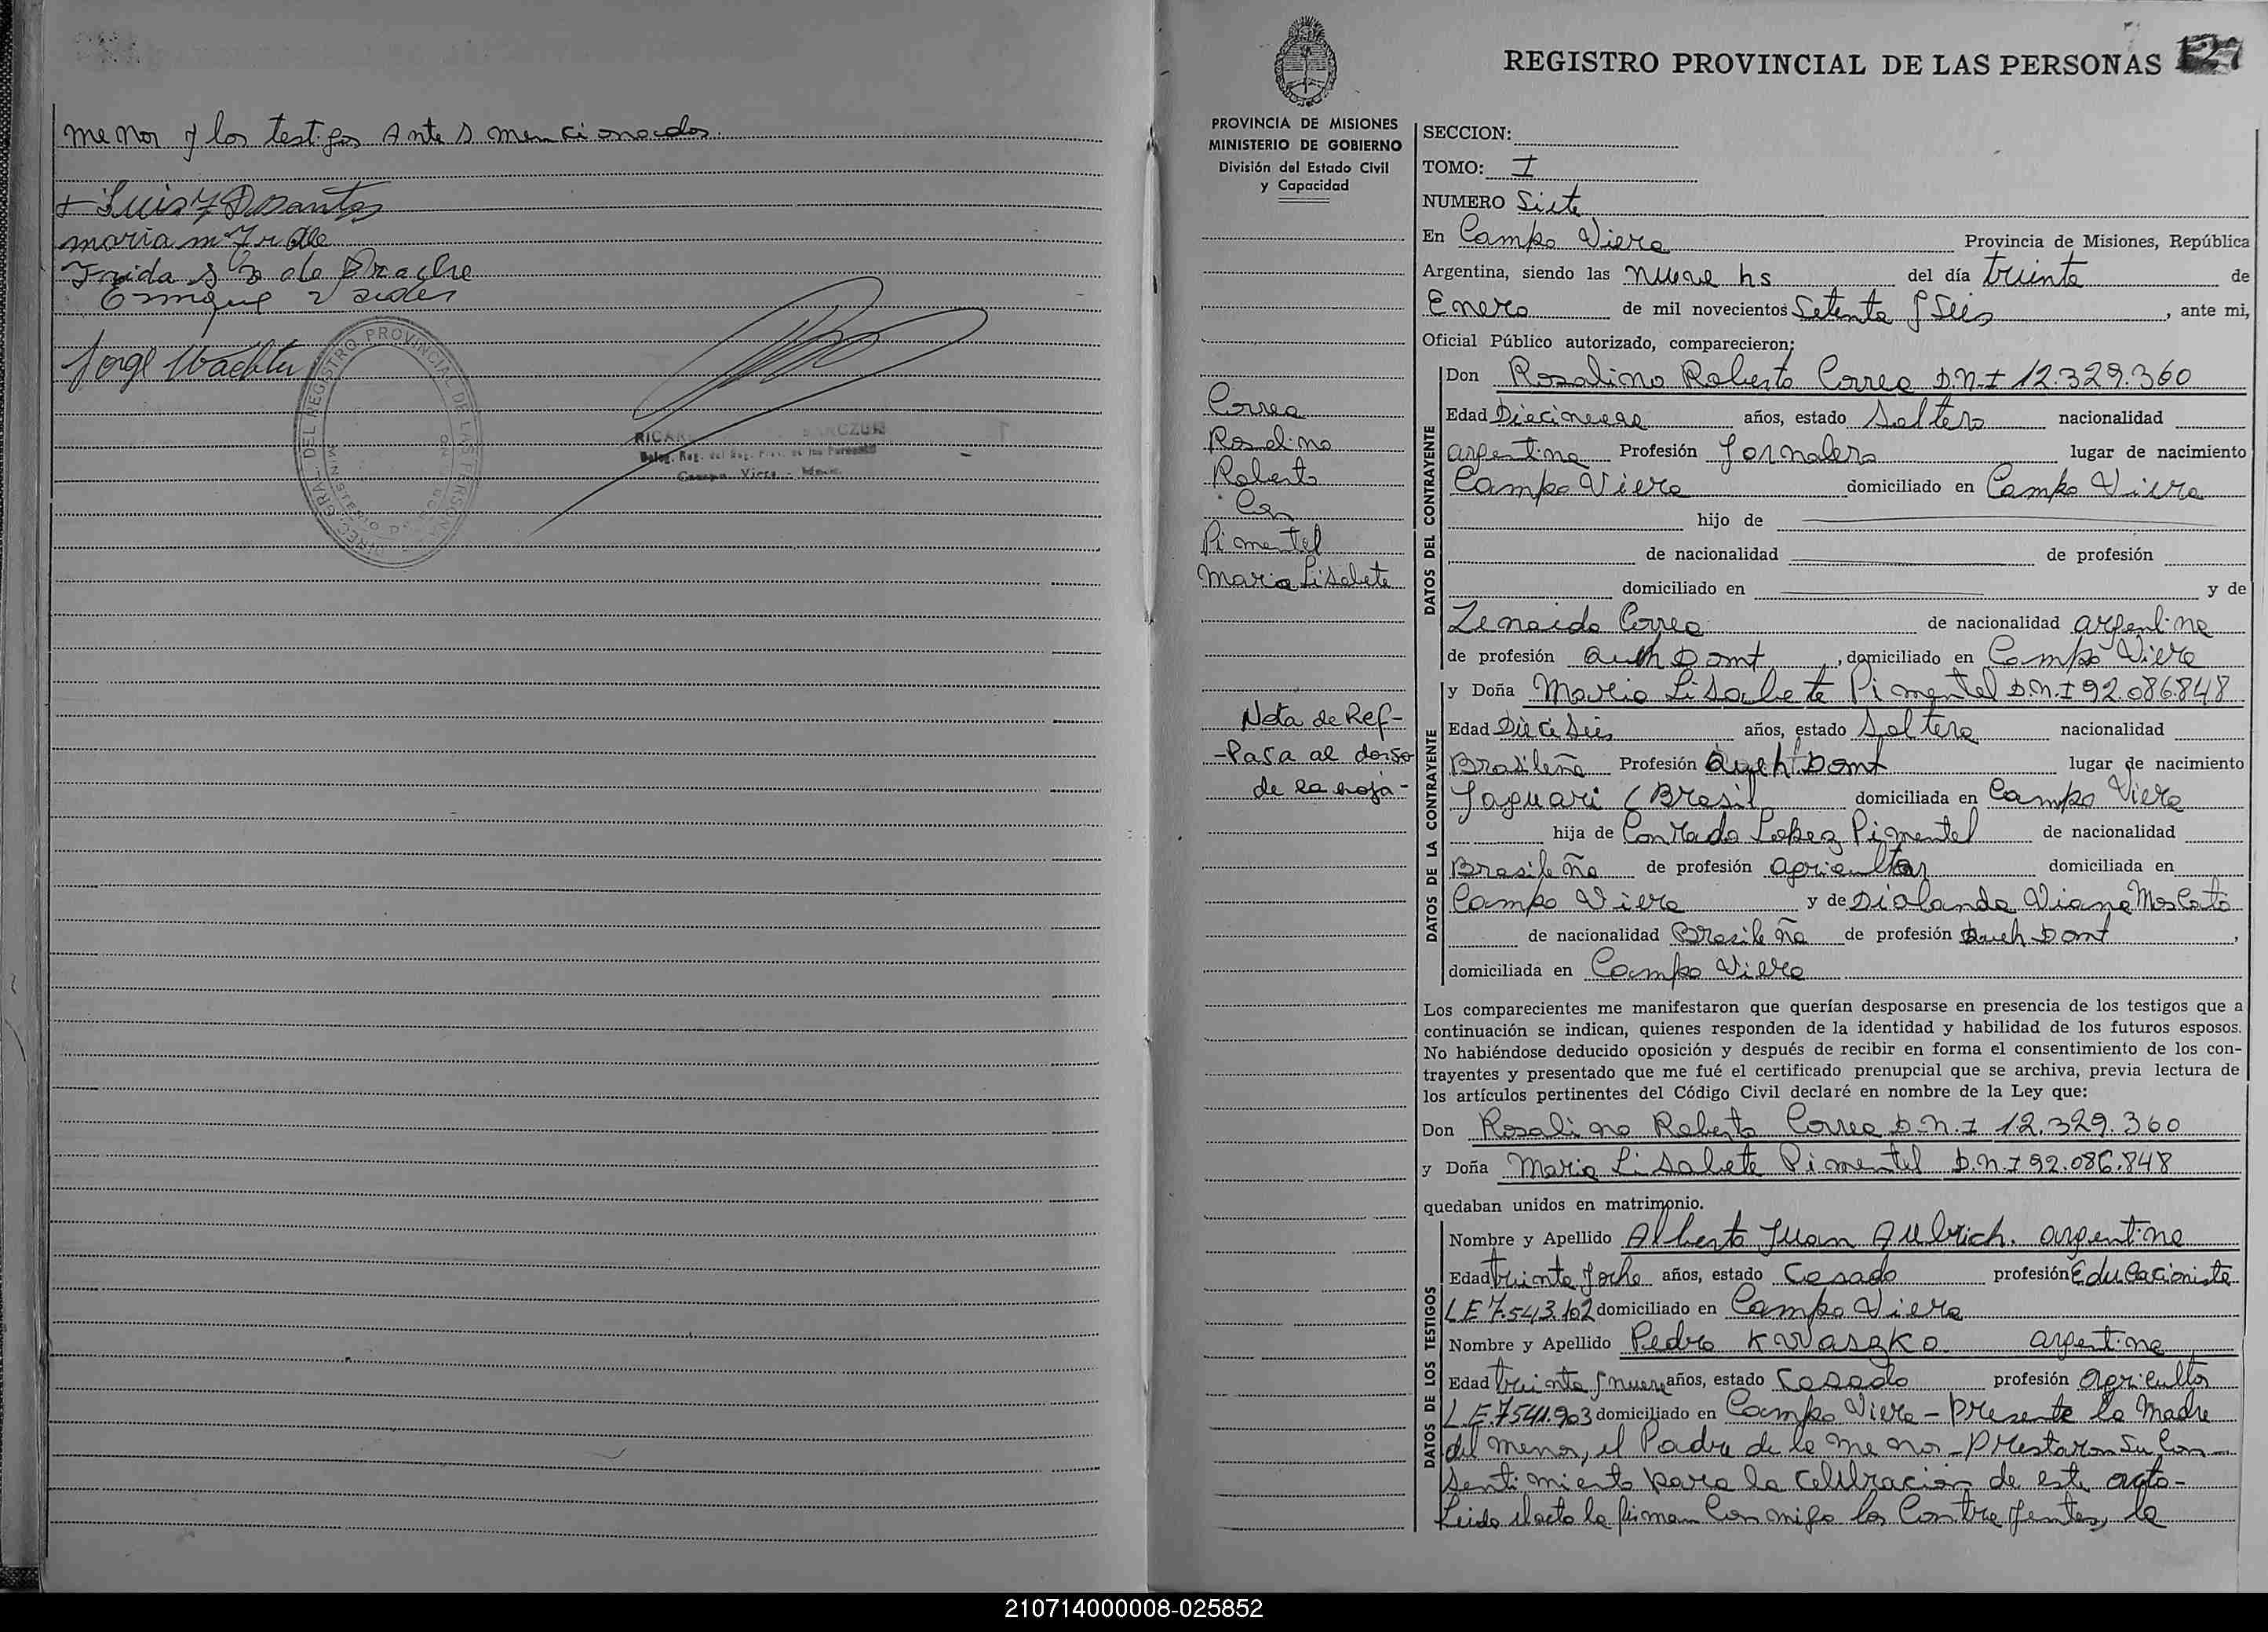 menor y los testigos Antes mencionados.
+ Luis Y Dsantos
maria m
Frida S B de Drache
Enrique
Jorge Wachter
DIREC. GRAL. DEL REGISTRO PROVINCIAL DE LAS PERSONAS
MINISTERIO DE GOB
RICAR
Deleg. Reg. del Reg. Prov. de las Personas
Campo Viera - Mnes.
REGISTRO PROVINCIAL DE LAS PERSONAS 127
PROVINCIA DE MISIONES
MINISTERIO DE GOBIERNO
División del Estado Civil
y Capacidad
Correa
Rosalino
Roberto
Con
Pimentel
Maria Lisabete
Nota de Ref-
-Pasa al dorso
de la hoja-
SECCION:
TOMO: I
NUMERO Siete
En Campo Viera Provincia de Misiones, República
Argentina, siendo las nueve hs del día treinta de
Enero de mil novecientos Setenta y Seis, ante mi,
Oficial Público autorizado, comparecieron:
DATOS DEL CONTRAYENTE
Don Rosalino Roberto Correa D.N.I 12.329.360
Edad Diecinueve años, estado Soltero nacionalidad
argentina Profesión Jornalero lugar de nacimiento
Campo Viera domiciliado en Campo Viera
hijo de
de nacionalidad de profesión
domiciliado en y de
Zenaida Correa de nacionalidad argentina
de profesión Aueh Domt, domiciliado en Campo Viera
DATOS DE LA CONTRAYENTE
y Doña Maria Lisabete Pimentel D.N.I 92.086.848
Edad Dieciseis años, estado Soltera nacionalidad
Brasileña Profesión Queh Domt lugar de nacimiento
Jaguari (Brasil domiciliada en Campo Viera
hija de Conrado Lopez Pimentel de nacionalidad
Brasileña de profesión agricultor domiciliada en
Campo Viera y de Diolanda Viana Moscato
de nacionalidad Brasileña de profesión Queh Domt,
domiciliada en Campo Viera
Los comparecientes me manifestaron que querían desposarse en presencia de los testigos que a
continuación se indican, quienes responden de la identidad y habilidad de los futuros esposos.
No habiéndose deducido oposición y después de recibir en forma el consentimiento de los con-
trayentes y presentado que me fué el certificado prenupcial que se archiva, previa lectura de
los artículos pertinentes del Código Civil declaré en nombre de la Ley que:
Don Rosalino Roberto Correa D.N.I 12.329.360
y Doña Maria Lisabete Pimentel D.N.I 92.086.848
quedaban unidos en matrimonio.
DATOS DE LOS TESTIGOS
Nombre y Apellido Alberto Juan Aulbrich. argentina
Edad treinta y ocho años, estado Casado profesión Educacionista
LE 7.543.102 domiciliado en Campo Viera
Nombre y Apellido Pedro Kwaszko argentina
Edad treinta y nueve años, estado Casado profesión Agricultor
L.E.7541.903 domiciliado en Campo Viera - Presente la Madre
del menor, el Padre de la menor - Prestaron Su Con-
sentimiento para la Celebracion de este acto-
Leida el acta la firman Con migo los Contrayentes, la
210714000008-025852